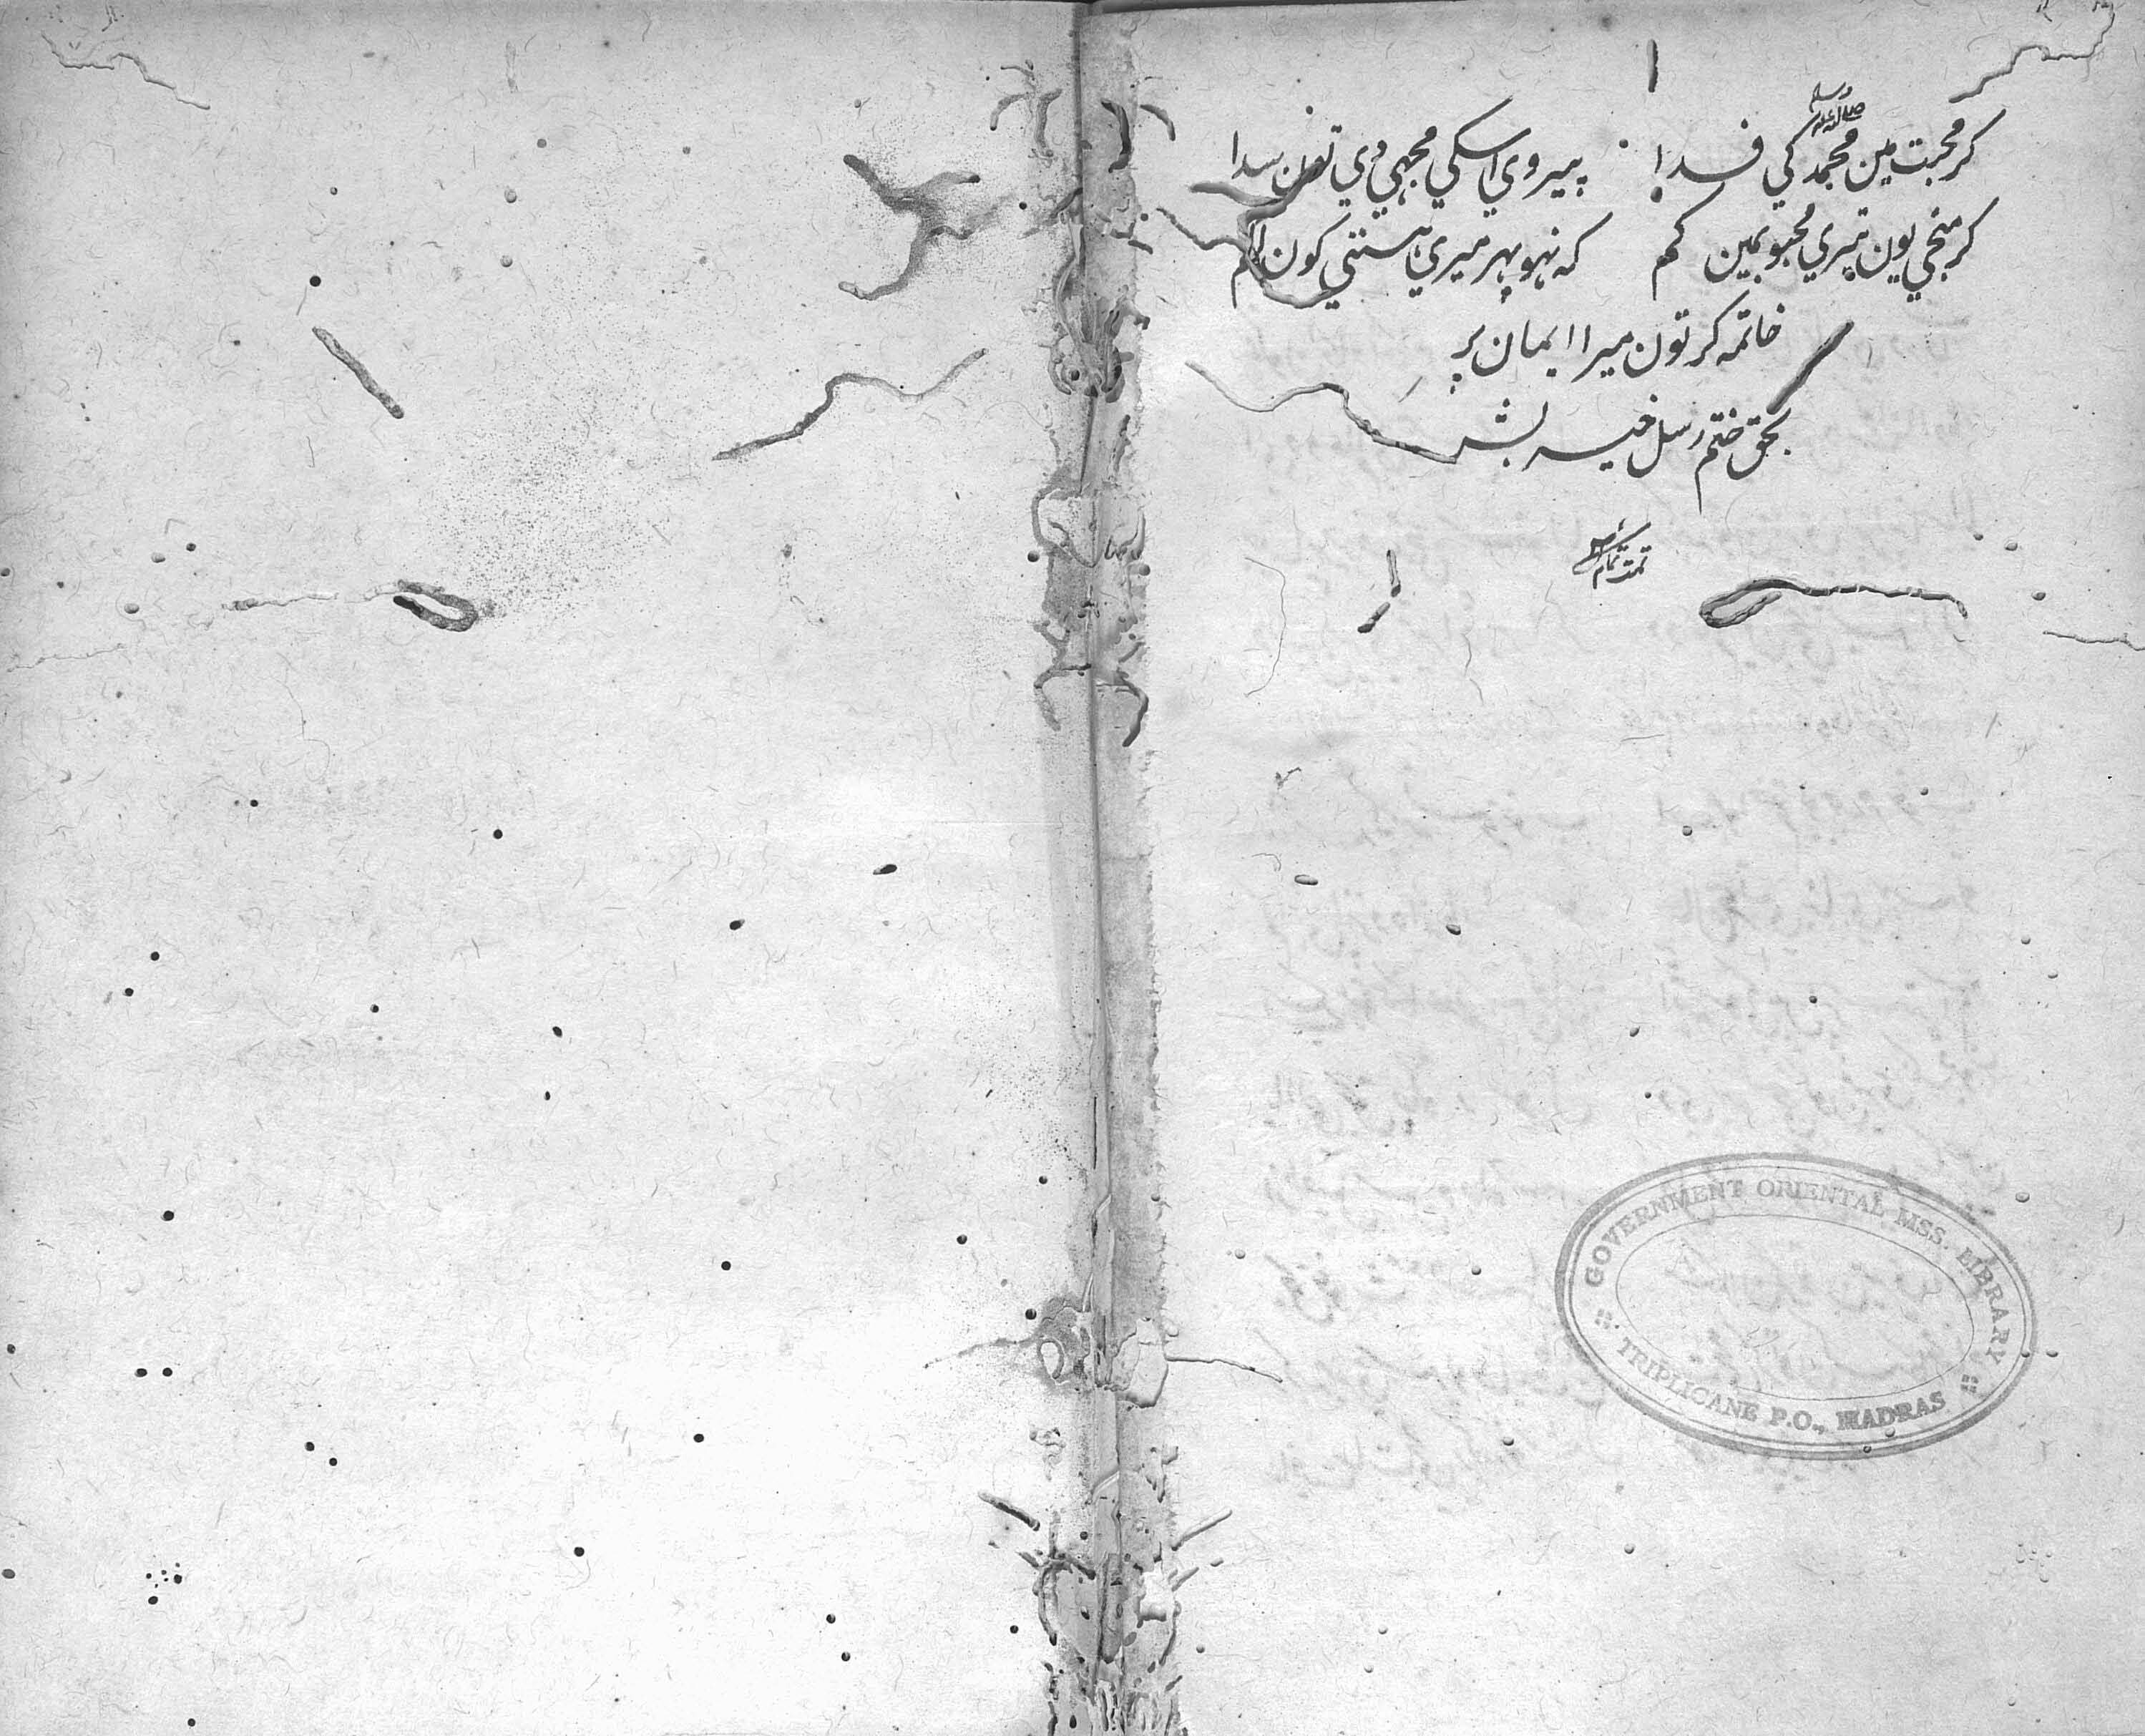 کر محبت مین محمد صلی الله علیه وسلم کی فدا پیروی اسکی مجهی دی تون سدا
کر منجی یون تیری محبوبمین کم که نہو پہر میری ہستی کون الم
خاتمه کر تون میرا ایمان پر
بحق ختم رسل خیر بشر
تمت تمام
GOVERNMENT ORIENTAL MSS. LIBRARY
TRIPLICANE P.O., MADRAS